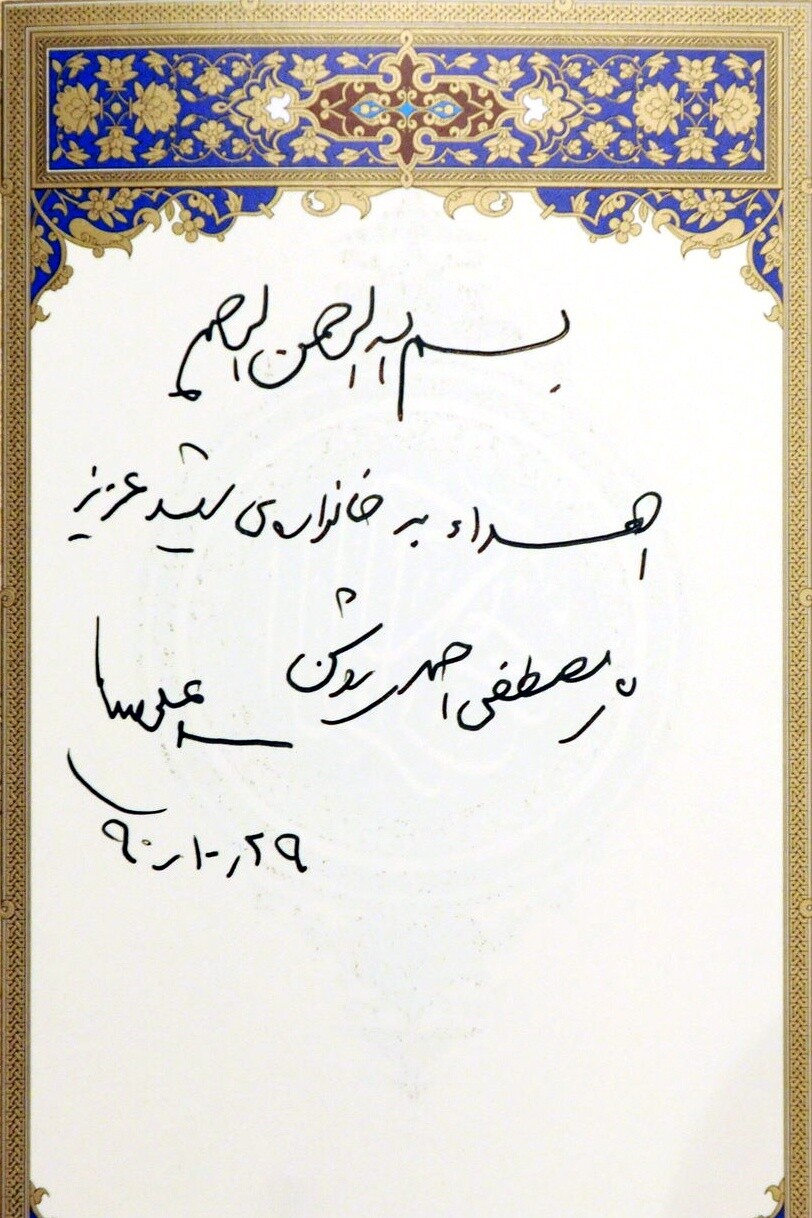 بسم الله الرحمن الرحیم
اهداء به خانواده‌ی شهید عزیز
مصطفی احمدی روشن
سیدعلی
۲۹ر۱۰ر۹۰